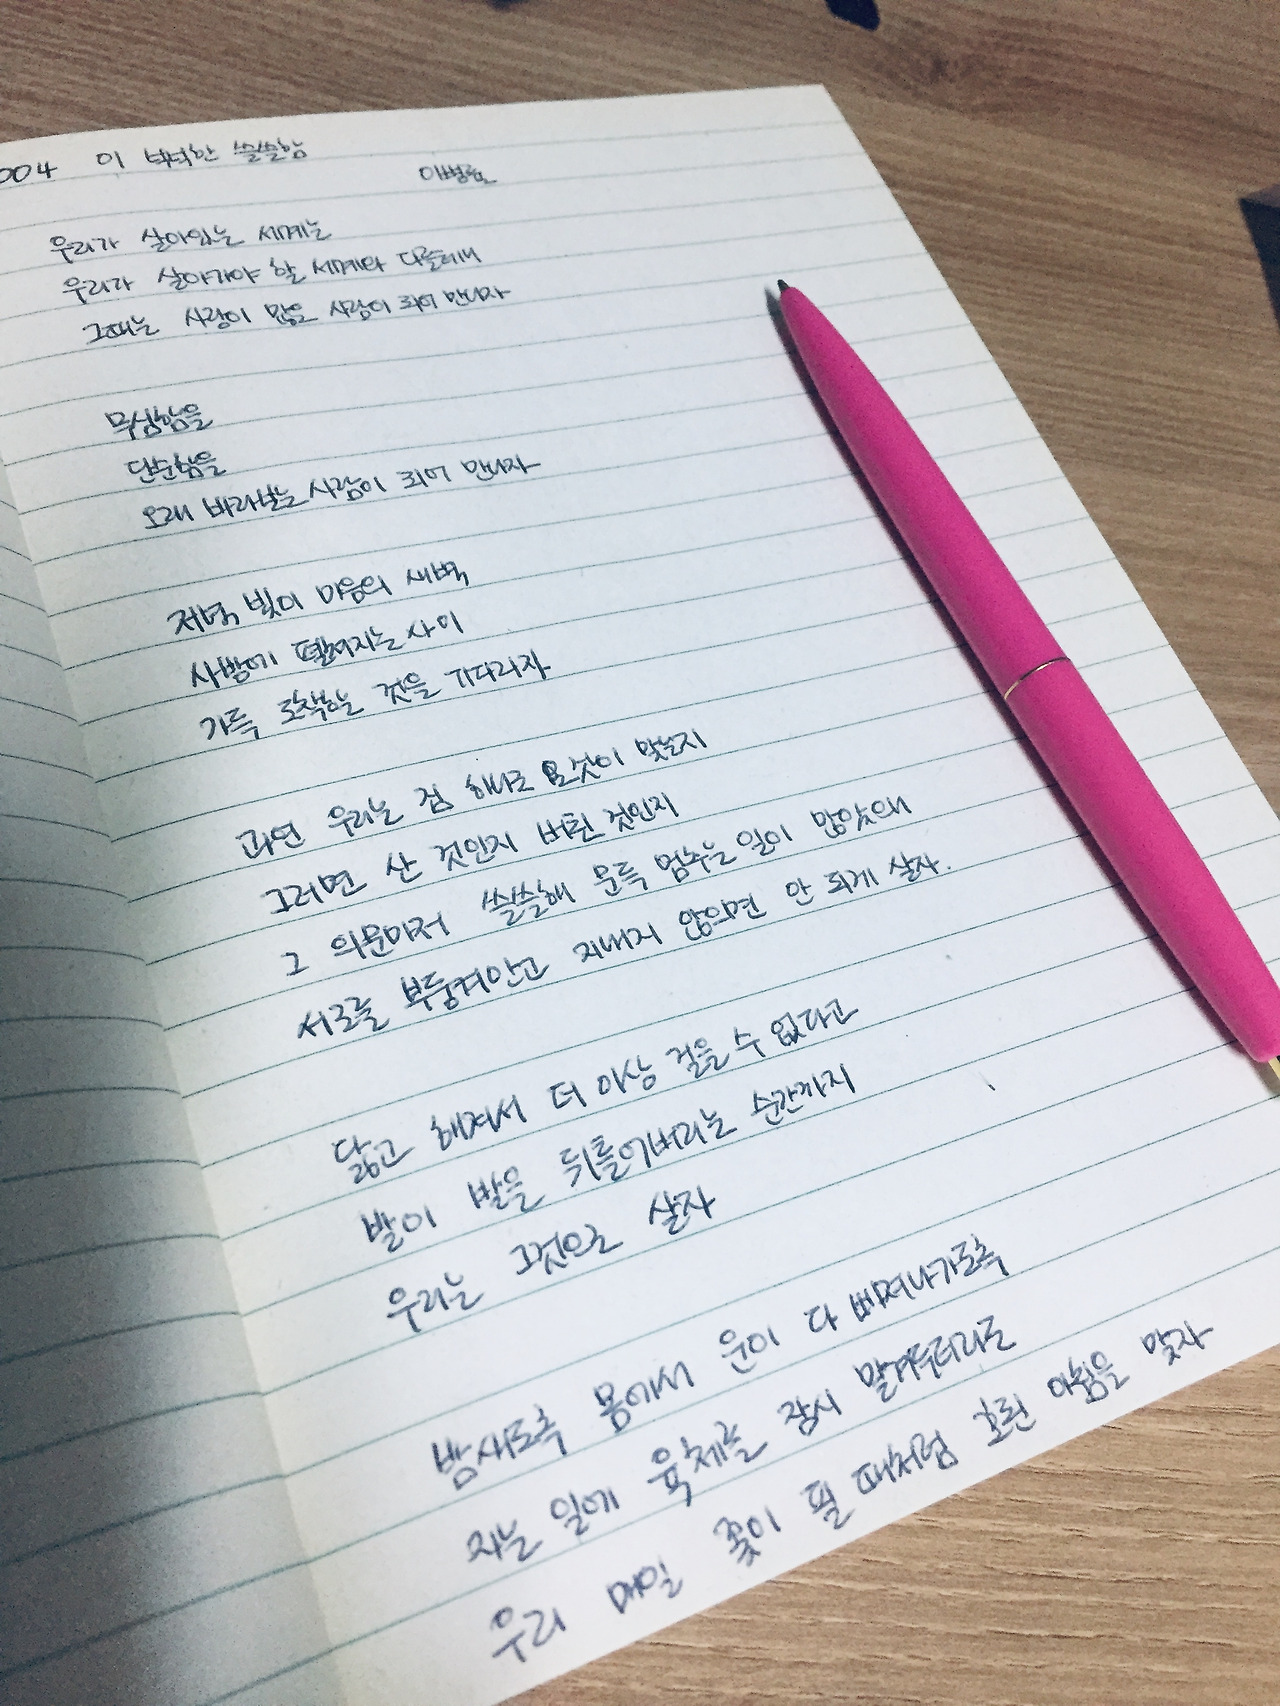 004 이 넉넉한 쓸쓸함
이병률
우리가 살아있는 세계는
우리가 살아가야 할 세계와 다를테니
그때는 사랑이 많은 사람이 되어 만나자
무심함을
단순함을
오래 바라보는 사람이 되어 만나자
저녁 빛이 마음의 새벽
사방에 떨어지는 사이
가득 도착하는 것을 기다리자
과연 우리는 점 하나로 온 것이 맞는지
그러면 산 것인지 버틴 것인지
그 의문마저 쓸쓸해 문득 멈추는 일이 많았으니
서로를 부둥켜안고 지내지 않으면 안 되게 살자.
닳고 해져서 더 이상 걸을 수 없다고
발이 발을 뒤틀어버리는 순간까지
우리는 그것으로 살자
밤새도록 몸에서 운이 다 빠져나가도록
자는 일에 육체를 잠시 맡겨두더라도
우리 매일 꽃이 필 때처럼 호된 아침을 맞자